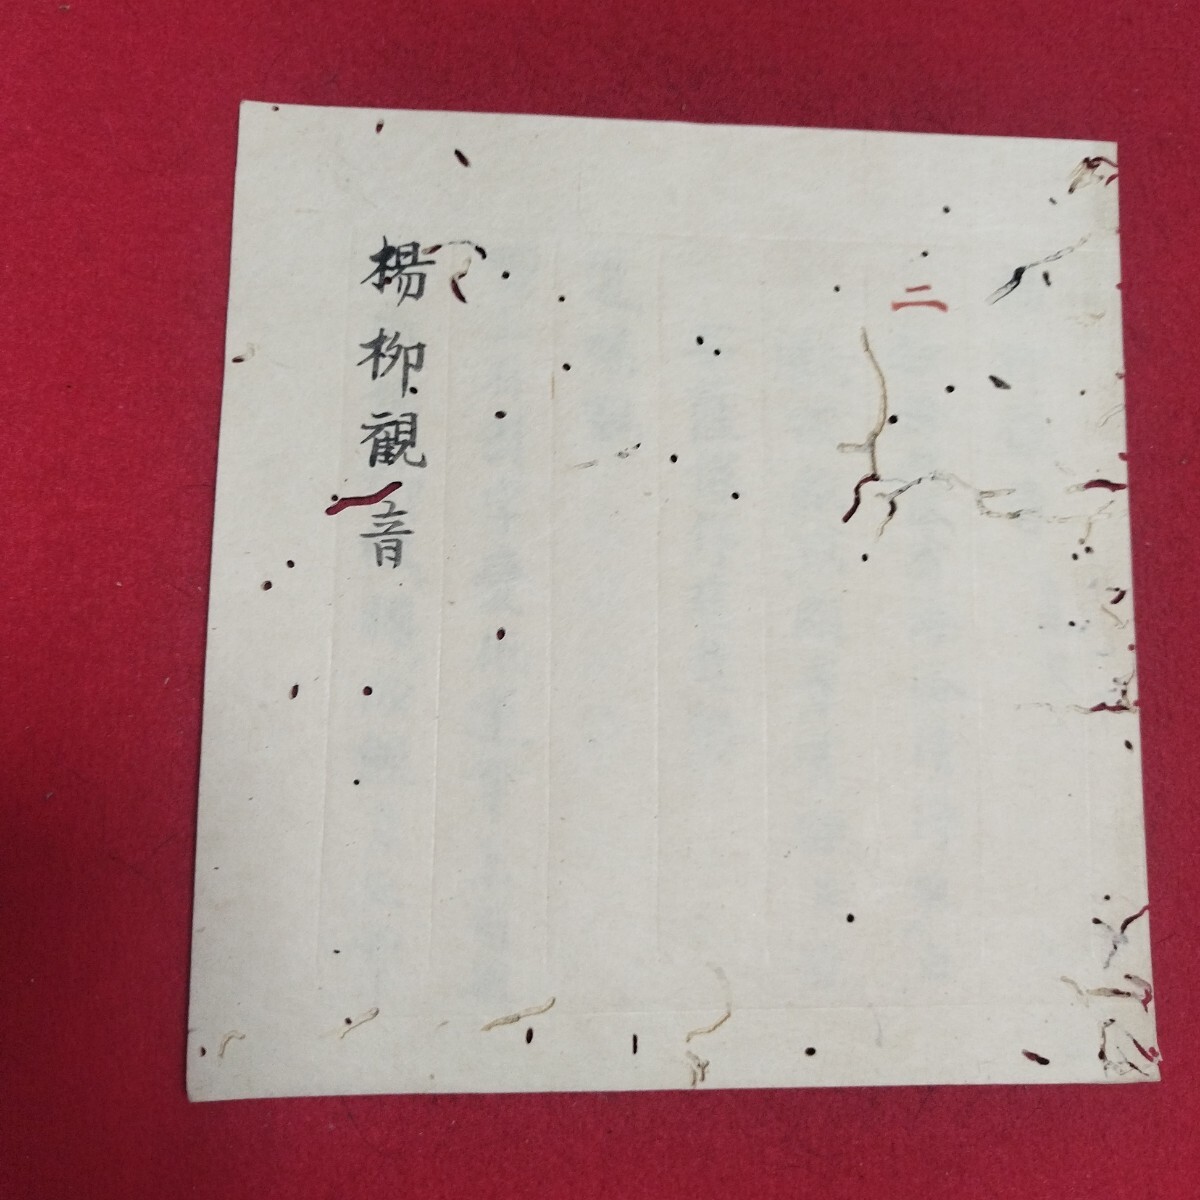 二
楊柳観音